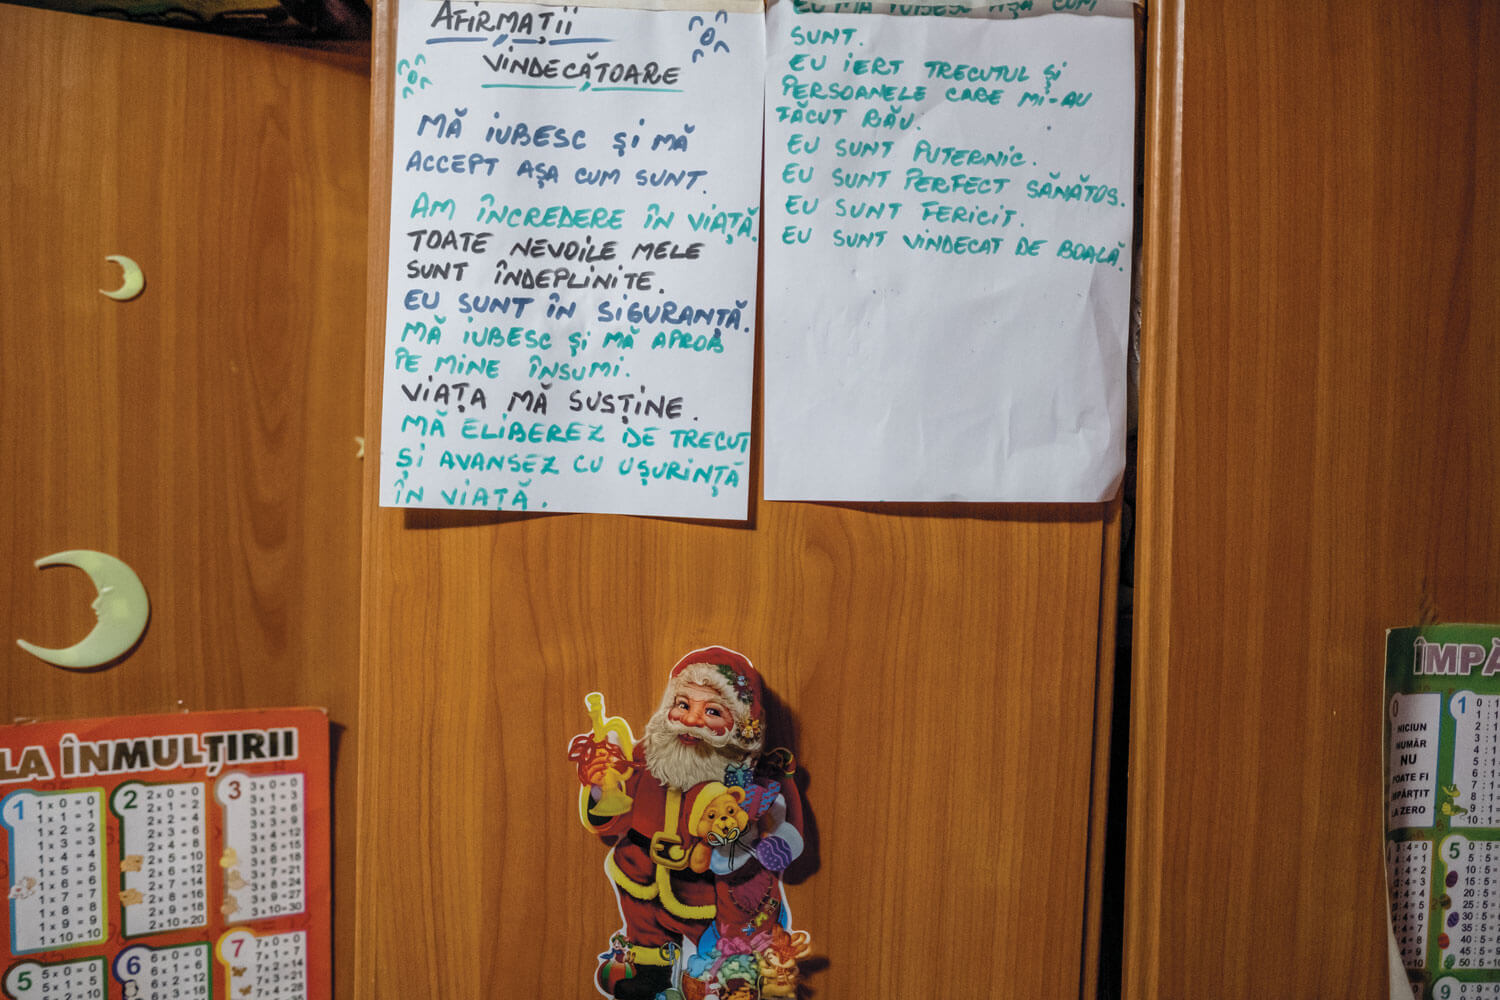 AFIRMAȚII
VINDECĂTOARE
MĂ IUBESC ȘI MĂ
ACCEPT AȘA CUM SUNT.
AM ÎNCREDERE ÎN VIAȚĂ.
TOATE NEVOILE MELE
SUNT ÎNDEPLINITE.
EU SUNT ÎN SIGURANȚĂ.
MĂ IUBESC ȘI MĂ APROB
PE MINE ÎNSUMI.
VIAȚA MĂ SUSȚINE.
MĂ ELIBEREZ DE TRECUT
ȘI AVANSEZ CU UȘURINȚĂ
ÎN VIAȚĂ.
EU MĂ IUBESC AȘA CUM
SUNT.
EU IERT TRECUTUL ȘI
PERSOANELE CARE MI-AU
FĂCUT RĂU.
EU SUNT PUTERNIC.
EU SUNT PERFECT SĂNĂTOS.
EU SUNT FERICIT.
EU SUNT VINDECAT DE BOALĂ.
LA ÎNMULȚIRII
1
1 x 0 = 0
1 x 1 = 1
1 x 2 = 2
1 x 3 = 3
1 x 4 = 4
1 x 5 = 5
1 x 6 = 6
1 x 7 = 7
1 x 8 = 8
1 x 9 = 9
1 x 10 = 10
2
2 x 0 = 0
2 x 1 = 2
2 x 2 = 4
2 x 3 = 6
2 x 4 = 8
2 x 5 = 10
2 x 6 = 12
2 x 7 = 14
2 x 8 = 16
2 x 9 = 18
2 x 10 = 20
3
3 x 0 = 0
3 x 1 = 3
3 x 2 = 6
3 x 3 = 9
3 x 4 = 12
3 x 5 = 15
3 x 6 = 18
3 x 7 = 21
3 x 8 = 24
3 x 9 = 27
3 x 10 = 30
5
5 x 0 = 0
5 x 1 = 5
6
6 x 0 = 0
6 x 1 = 6
6 x 2 = 12
6 x 3 = 18
7
7 x 0 = 0
7 x 1 = 7
7 x 2 = 14
7 x 3 = 21
7 x 4 = 28
ÎMPĂ
0
NICIUN
NUMĂR
NU
POATE FI
ÎMPĂRȚIT
LA ZERO
1
0 : 1
1 : 1
2 : 1
3 : 1
4 : 1
5 : 1
6 : 1
7 : 1
8 : 1
9 : 1
10 : 1
: 4 = 0
: 4 = 1
: 4 = 2
: 4 = 3
: 4 = 4
5
0 : 5 =
5 : 5 =
10 : 5 =
15 : 5 =
20 : 5 =
25 : 5 =
30 : 5 =
35 : 5 =
40 : 5 =
45 : 5 =
50 : 5 =
9
0 : 9 = 0